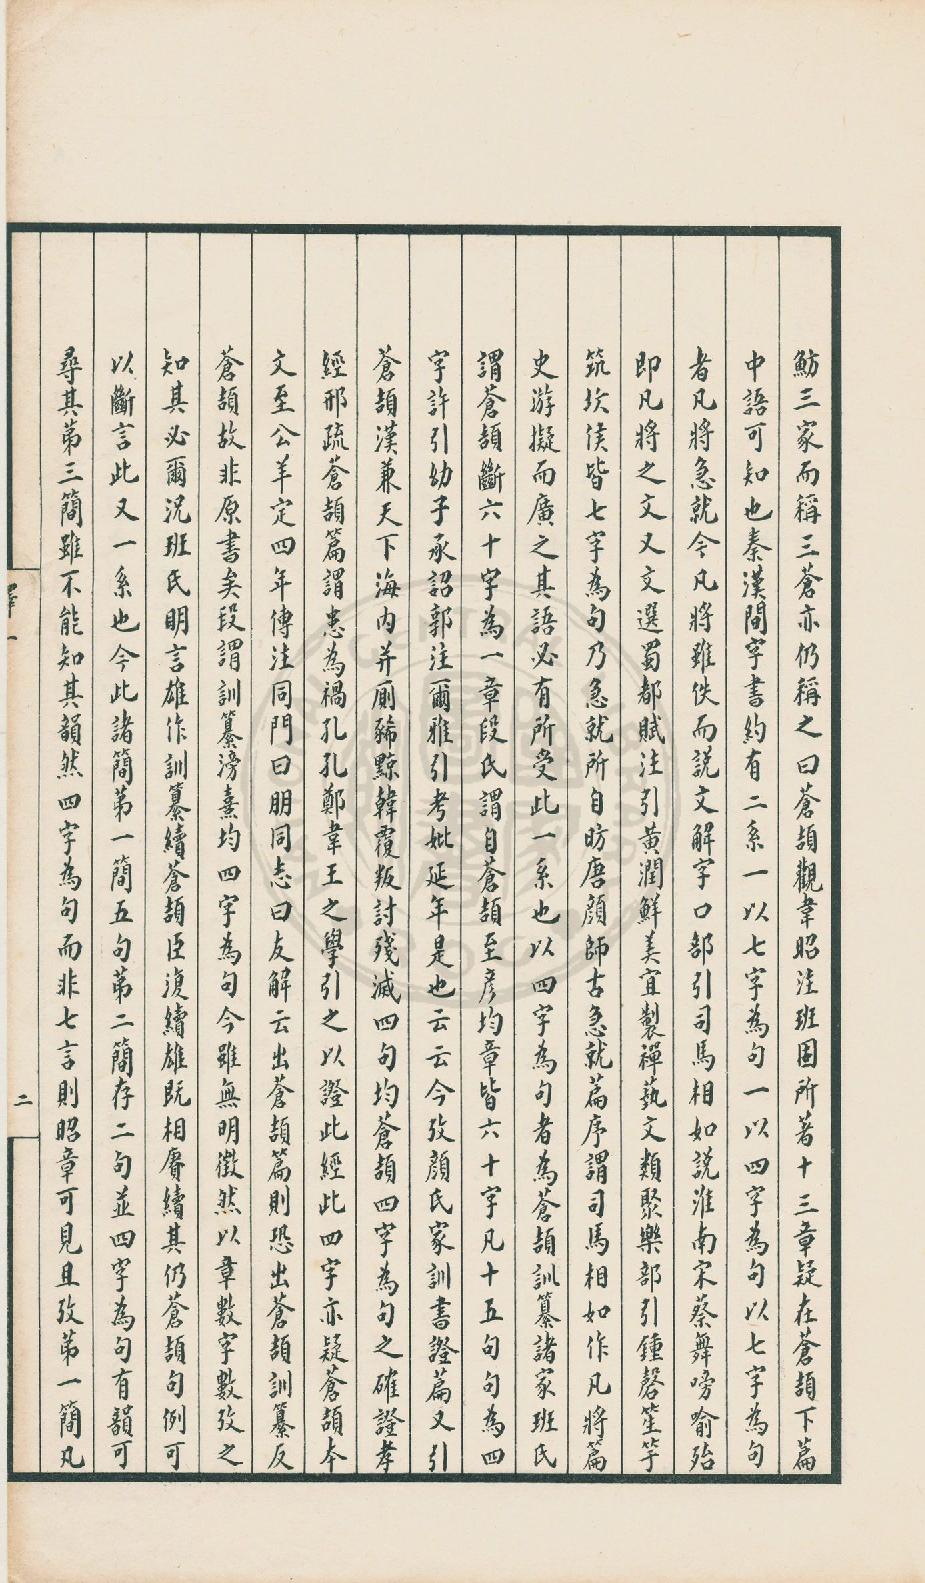 魴三家而稱三蒼亦仍稱之曰蒼頡觀韋昭注班固所著十三章疑在蒼頡下篇
中語可知也秦漢間字書約有二系一以七字為句一以四字為句以七字為句
者凡將急就今凡將雖佚而說文解字口部引司馬相如說淮南宋蔡舞嗙喻殆
即凡將之文又文選蜀都賦注引黃潤鮮美宜製禪藝文類聚樂部引鍾磬笙竽
筑坎侯皆七字為句乃急就所自昉唐顏師古急就篇序謂司馬相如作凡將篇
史游擬而廣之其語必有所受此一系也以四字為句者為蒼頡訓纂諸家班氏
謂蒼頡斷六十字為一章段氏謂自蒼頡至彥均章皆六十字凡十五句句為四
字許引幼子承詔郭注爾雅引考妣延年是也云云今攷顏氏家訓書證篇又引
蒼頡漢兼天下海內并廁豨黥韓覆叛討殘滅四句均蒼頡四字為句之確證孝
經邢疏蒼頡篇謂患為禍孔孔鄭韋王之學引之以證此經此四字亦疑蒼頡本
文至公羊定四年傳注同門曰朋同志曰友解云出蒼頡篇則恐出蒼頡訓纂反
蒼頡故非原書矣段謂訓纂滂熹均四字為句今雖無明徵然以章數字數攷之
知其必爾況班氏明言雄作訓纂續蒼頡臣復續雄既相賡續其仍蒼頡句例可
以斷言此又一系也今此諸簡第一簡五句第二簡存二句並四字為句有韻可
尋其第三簡雖不能知其韻然四字為句而非七言則昭章可見且攷第一簡凡
二